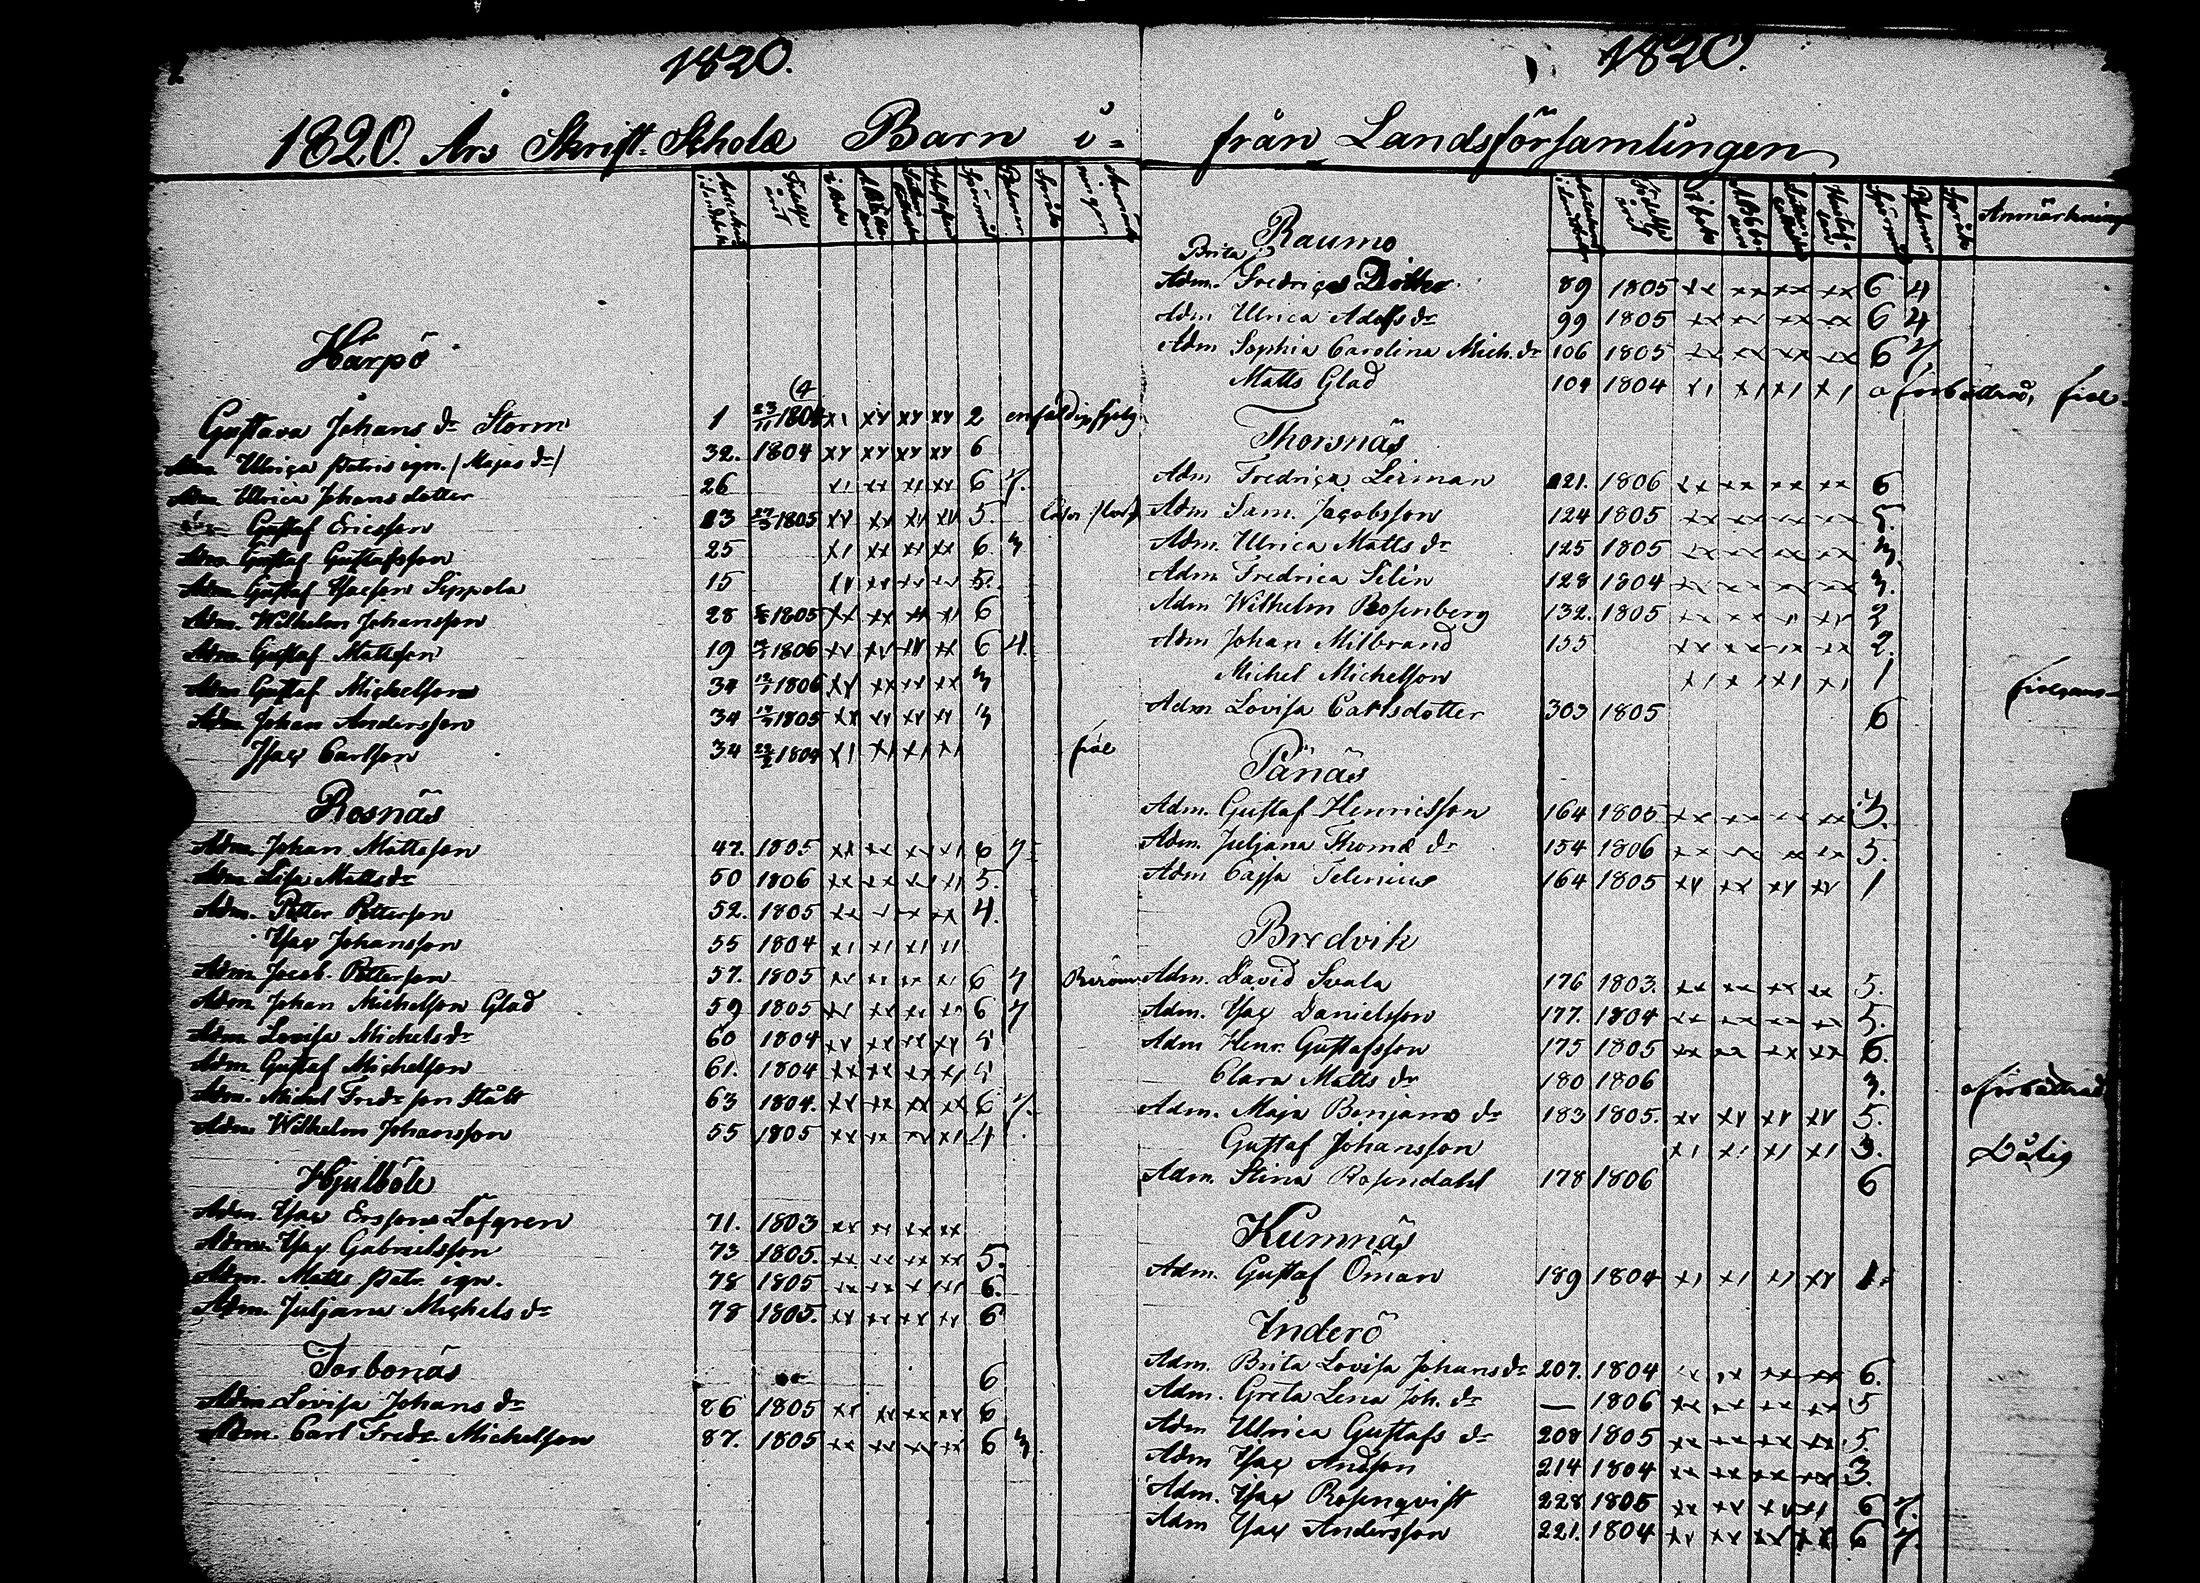 1820.
1820. Års Skrift-Schole Barn i
Harpö
Gustava Johans dr Storm 1 23/11 1804 x1 xx xx xx 2 enfaldig
Adm Ulrica Patris ign. / Majas dr / 32. 1804 xx xx xx xx 6
Adm Ulrica Johans dotter 26 x1 xx x1 xx 6
Gustaf Ericsson 23 1805 xx xx xx xx 5.
Adm Gustaf Gustafsson 25 x1 xx xx xx 6 3
Adm Gustaf Isacson Seppola 15 xx xx xx xx 5.
Adm. Wilhelm Johansson 28 1805 xx xx xx x1 6
Adm Gustaf Mattsson 19 1806 xx xx xx xx 6 4.
Adm Gustaf Michelsson 34 1806 xx xx xx xx 3
Adm Johan Andersson 34 1805 xx xx xx xx 3
Isac Carlsson 34 1804 x1 x1 x1 x1 fiol
Rosnäs
Adm Johan Mattsson 47. 1805 xx xx xx x1 6
Adm Lisa Matts dr 50 1806 xx xx xx x1 5.
Adm. Petter Pettersson 52. 1805 4.
Isac Johansson 55 1804 x1 x1 x1
Adm Jacob Pettersson 57. 1805 xx xx xx x1 6
Adm Johan Michelsson Glad 59 1805 xx xx xx xx 6
Adm Lovisa Michels dr 60 1804 xx xx xx xx
Adm Gustaf Michelsson 61. 1804 xx xx xx x1
Adm. Michel Fredr son Stålt 63 1804. xx xx xx xx 6
Adm Wilhelm Johansson 55 1805 xx xx xx x1 4.
Hjulböle
Adm. Isac Erssons Löfgren 71. 1803 xx xx xx xx
Adm. Isac Gabrielsson 73 1805. xx xx xx xx 5.
Adm. Matts Patr. ign. 78 1805 xx xx x 6.
Adm. Juljana Michels dr 78 1805. xx xx xx xx 6
Torbonäs
6
Adm Lovisa Johans dr 86 1805 xx xx xx xx 6
Adm. Carl Fredr. Michelsson 87. 1805 xx xx xx xx 6 3.
1820.
från Landsförsamlingen
Anmärkningar
Raumo
Brita
Adm. Fredrica 89 1805 xx xx xx xx 6 4
Adm Ulrica Adolfs dr 99 1805 xx xx xx xx 6 4
Adm Sophia Carolina Mich. dr 106 1805 xx xx xx xx 6
Matts Glad 104 1804 x1 x1 x1 x1 oförbättrad, fiol
Thorsnäs
Adm Fredrica Lerman 121. 1806 xx xx xx xx 6
Adm Sam. Jacobsson 124 1805 xx xx xx xx 5.
Adm. Ulrica Matts dr 125 1805 xx xx xx xx 3
Adm Fredrica Selin 128 1804 xx xx xx xx 3.
Adm Wilhelm Rosenberg 132. 1805 xx xx x1 xx 2
Adm Johan Milbrand 155 xx xx xx xx 2.
Michel Michelsson x1 x1 x1 x1 1
Adm Lovisa Carlsdotter 303 1805 6
Pänäs
Adm. Gustaf Henricsson 164 1805 xx xx xx xx 3.
Adm. Juljana Thoms dr 154 1806 xx xx xx xx 5.
Adm Cajsa Telenius 164 1805 xx xx xx xx 1
Bredvik
Adm. David Svala 176 1803. xx xx xx xx 5.
Adm. Isac Danielsson 177. 1804 xx xx xx xx 5.
Adm Henr. Gustafsson 175 1805 xx xx xx xx 6.
Clara Matts dr 180 1806 3. oförbättrad
Adm. Maja Benjams dr 183 1805. xx xx xx xx 5.
Gustaf Johansson x1 x1 x1 x1 3. Dålig
Adm. Stina Rosendahl 178 1806 6
Kumnäs
Adm. Gustaf Öman 189 1804 x1 x1 x1 xx 1.
Inderö
Adm. Brita Lovisa Johans dr 207. 1804 xx xx xx xx 6.
Adm. Greta Lena Joh. dr — 1806 xx xx xx xx 5
Adm Ulrica Gustafs dr 208 1805 xx xx xx xx 5.
Adm Isac Andsson 214 1804 xx xx xx xx 3.
Adm. Isac Rosenqvist 228 1805 xx xx xx x1 6
Adm Isac Andersson 221. 1804 xx xx xx xx 6